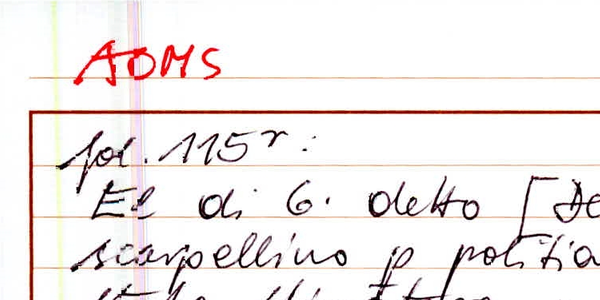 AOMS
fol. 115r:
El di 6. detto [De
scarpellino p politia